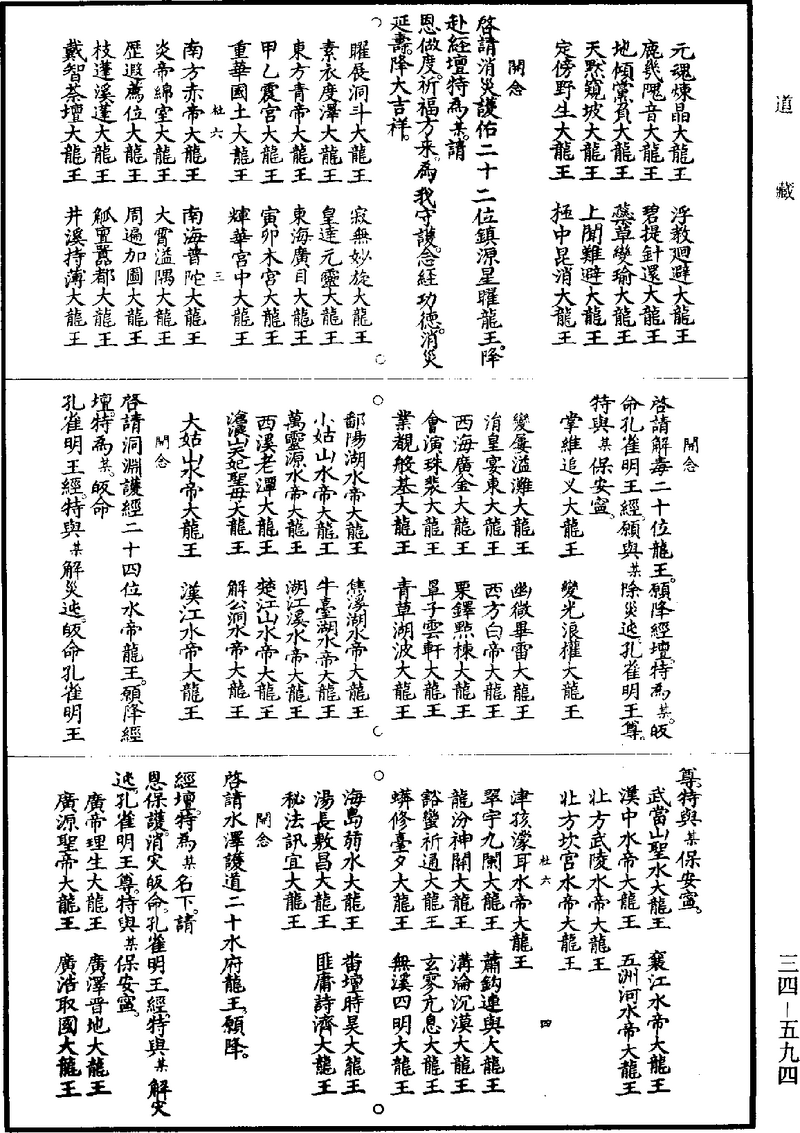 道藏
元魂煉晶大龍王　浮教廻避大龍王
鹿㡬隗音大龍王　碧提針還大龍王
地傾棠負大龍王　蘂草變瑜大龍王
天黙窺坡大龍王　上聞難避大龍王
定傍野生大龍王　極中昆消大龍王
開念
啓請消災護佑二十二位鎮源星曜龍王。降
赴經壇。特為某。請
恩做度。祈福方来。為我守護。念經功德。消災
延壽。降大吉祥。
曜辰洞斗大龍王　寂無妙旋大龍王
素衣度澤大龍王　皇達元靈大龍王
東方青帝大龍王　東海廣目大龍王
甲乙震宮大龍王　寅卯木宮大龍王
重華國土大龍王　輝華宮中大龍王
杜六　三
南方赤帝大龍王　南海普陀大龍王
炎帝綿室大龍王　大霄溢隅大龍王
歷遐薦位大龍王　周遍加圖大龍王
枝蓬溪蓬大龍王　觚亶囂都大龍王
戴智荼壇大龍王　井溪持薄大龍王
開念
啓請解毒二十位龍王。願降經壇。特為某。皈
命孔雀明王經。願與某除災速。孔雀明王尊
特與某保安寧。
掌維追义大龍王　變光浪㩴大龍王
變屢溢灘大龍王　幽微畢雷大龍王
㳙皇宴東大龍王　西方白帝大龍王
西海廣金大龍王　栗鐸㸃棟大龍王
會演珠裴大龍王　單子雲軒大龍王
業觀般基大龍王　青草湖波大龍王
鄱陽湖水帝大龍王　焦溪湖水帝大龍王
小姑山水帝大龍王　牛臺湖水帝大龍王
萬靈源水帝大龍王　湖江溪水帝大龍王
西溪老潭大龍王　楚江山水帝大龍王
滄山天妃聖母大龍王　解公洞水帝大龍王
大姑山水帝大龍王　漢江水帝大龍王
開念
啓請洞淵護經二十四位水帝龍王。願降經
壇。特為某。皈命
孔雀明王經。特與某解災速。皈命孔雀明王
尊。特與某保安寧。
武當山聖水大龍王　襄江水帝大龍王
漢中水帝大龍王　五洲河水帝大龍王
北方武陵水帝大龍王
北方坎宮水帝大龍王
杜六　四
津孩濛耳水帝大龍王
翠宇九閑大龍王　蕭鈎連與大龍王
龍汾神闗大龍王　溝淪沉漠大龍王
谿蠻祈通大龍王　玄寥亢息大龍王
蟒修臺夕大龍王　無溪四明大龍王
海島荕水大龍王　畨壇時昊大龍王
湯長敷昌大龍王　匪庸詩濟大龍王
秘法訊宜大龍王
開念
啓請水澤護道二十水府龍王。願降。
經壇。特為某名下。請
恩保護消灾。皈命。孔雀明王經。特與某解灾
速。孔雀明王尊。特與某保安寧。
廣帝理生大龍王　廣澤晋地大龍王
廣源聖帝大龍王　廣浩取國大龍王
三四—五九四